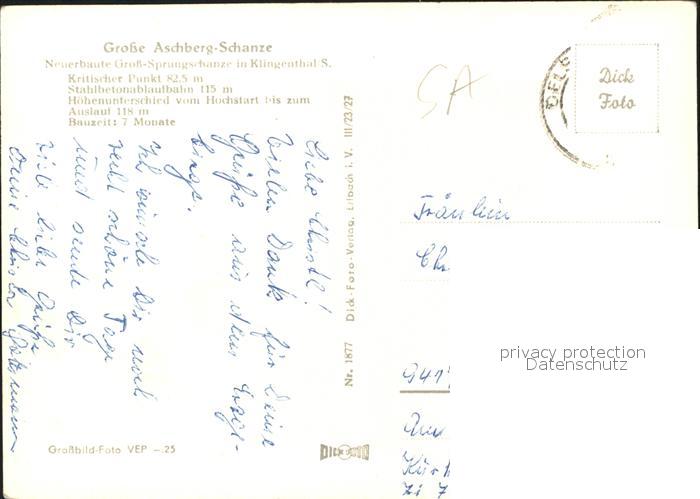 Große Aschberg-Schanze
Neuerbaute Groß-Sprungschanze in Klingenthal/S.
Kritischer Punkt 82,5 m
Stahlbetonablaufbahn 115 m
Höhenunterschied vom Hochstart bis zum
Auslauf 118 m
Bauzeit: 7 Monate
Liebe
Vielen Dank für Deine
Grüße aus dem Erzge-
birge.
Ich wünsche Dir noch
recht schöne Tage
und sende Dir
viele liebe Grüße
Deine
Großbild-Foto VEP -.25
Nr. 1877 Dick-Foto-Verlag, Erlbach i. V. III/23/27
DICK FOTO
SA
Dick
Foto
Fräulein
Ch
941
privacy protection
Datenschutz